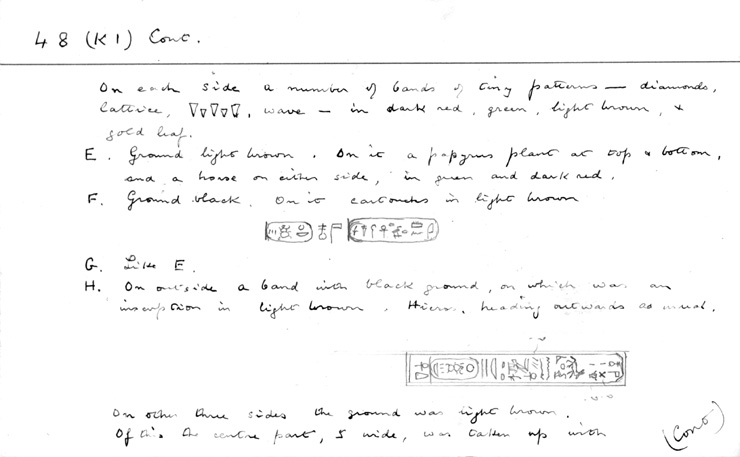 48 (K1) Cont.
On each side a number of bands of tiny patterns — diamonds,
lattice, ▽▽▽▽▽, wave — in dark red, green, light brown, &
gold leaf.
E. Ground light brown. On it a papyrus plant at top & bottom,
and a horse on either side, in green and dark red.
F. Ground black. On it cartouches in light brown
G. Like E.
H. On outside a band with black ground, on which was an
inscription in light brown. Hiero. heading outwards as usual.
On other three sides the ground was light brown.
Of this the centre part, 5 wide, was taken up with
(Cont)